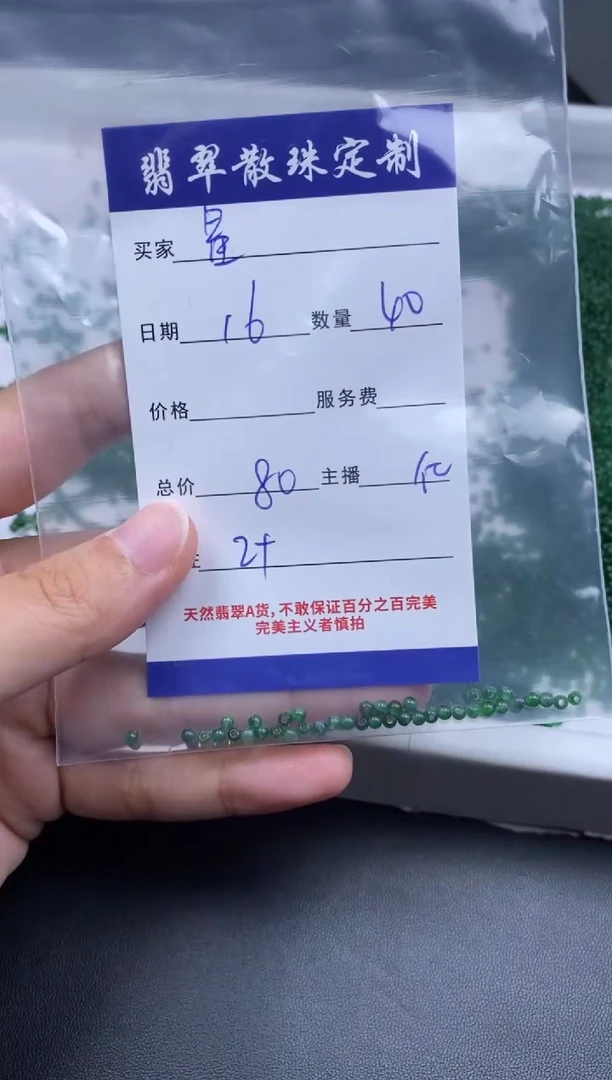 翡翠散珠定制
买家 星
日期 16 数量 40
价格 服务费
总价 80 主播
2+
天然翡翠A货,不敢保证百分之百完美
完美主义者慎拍